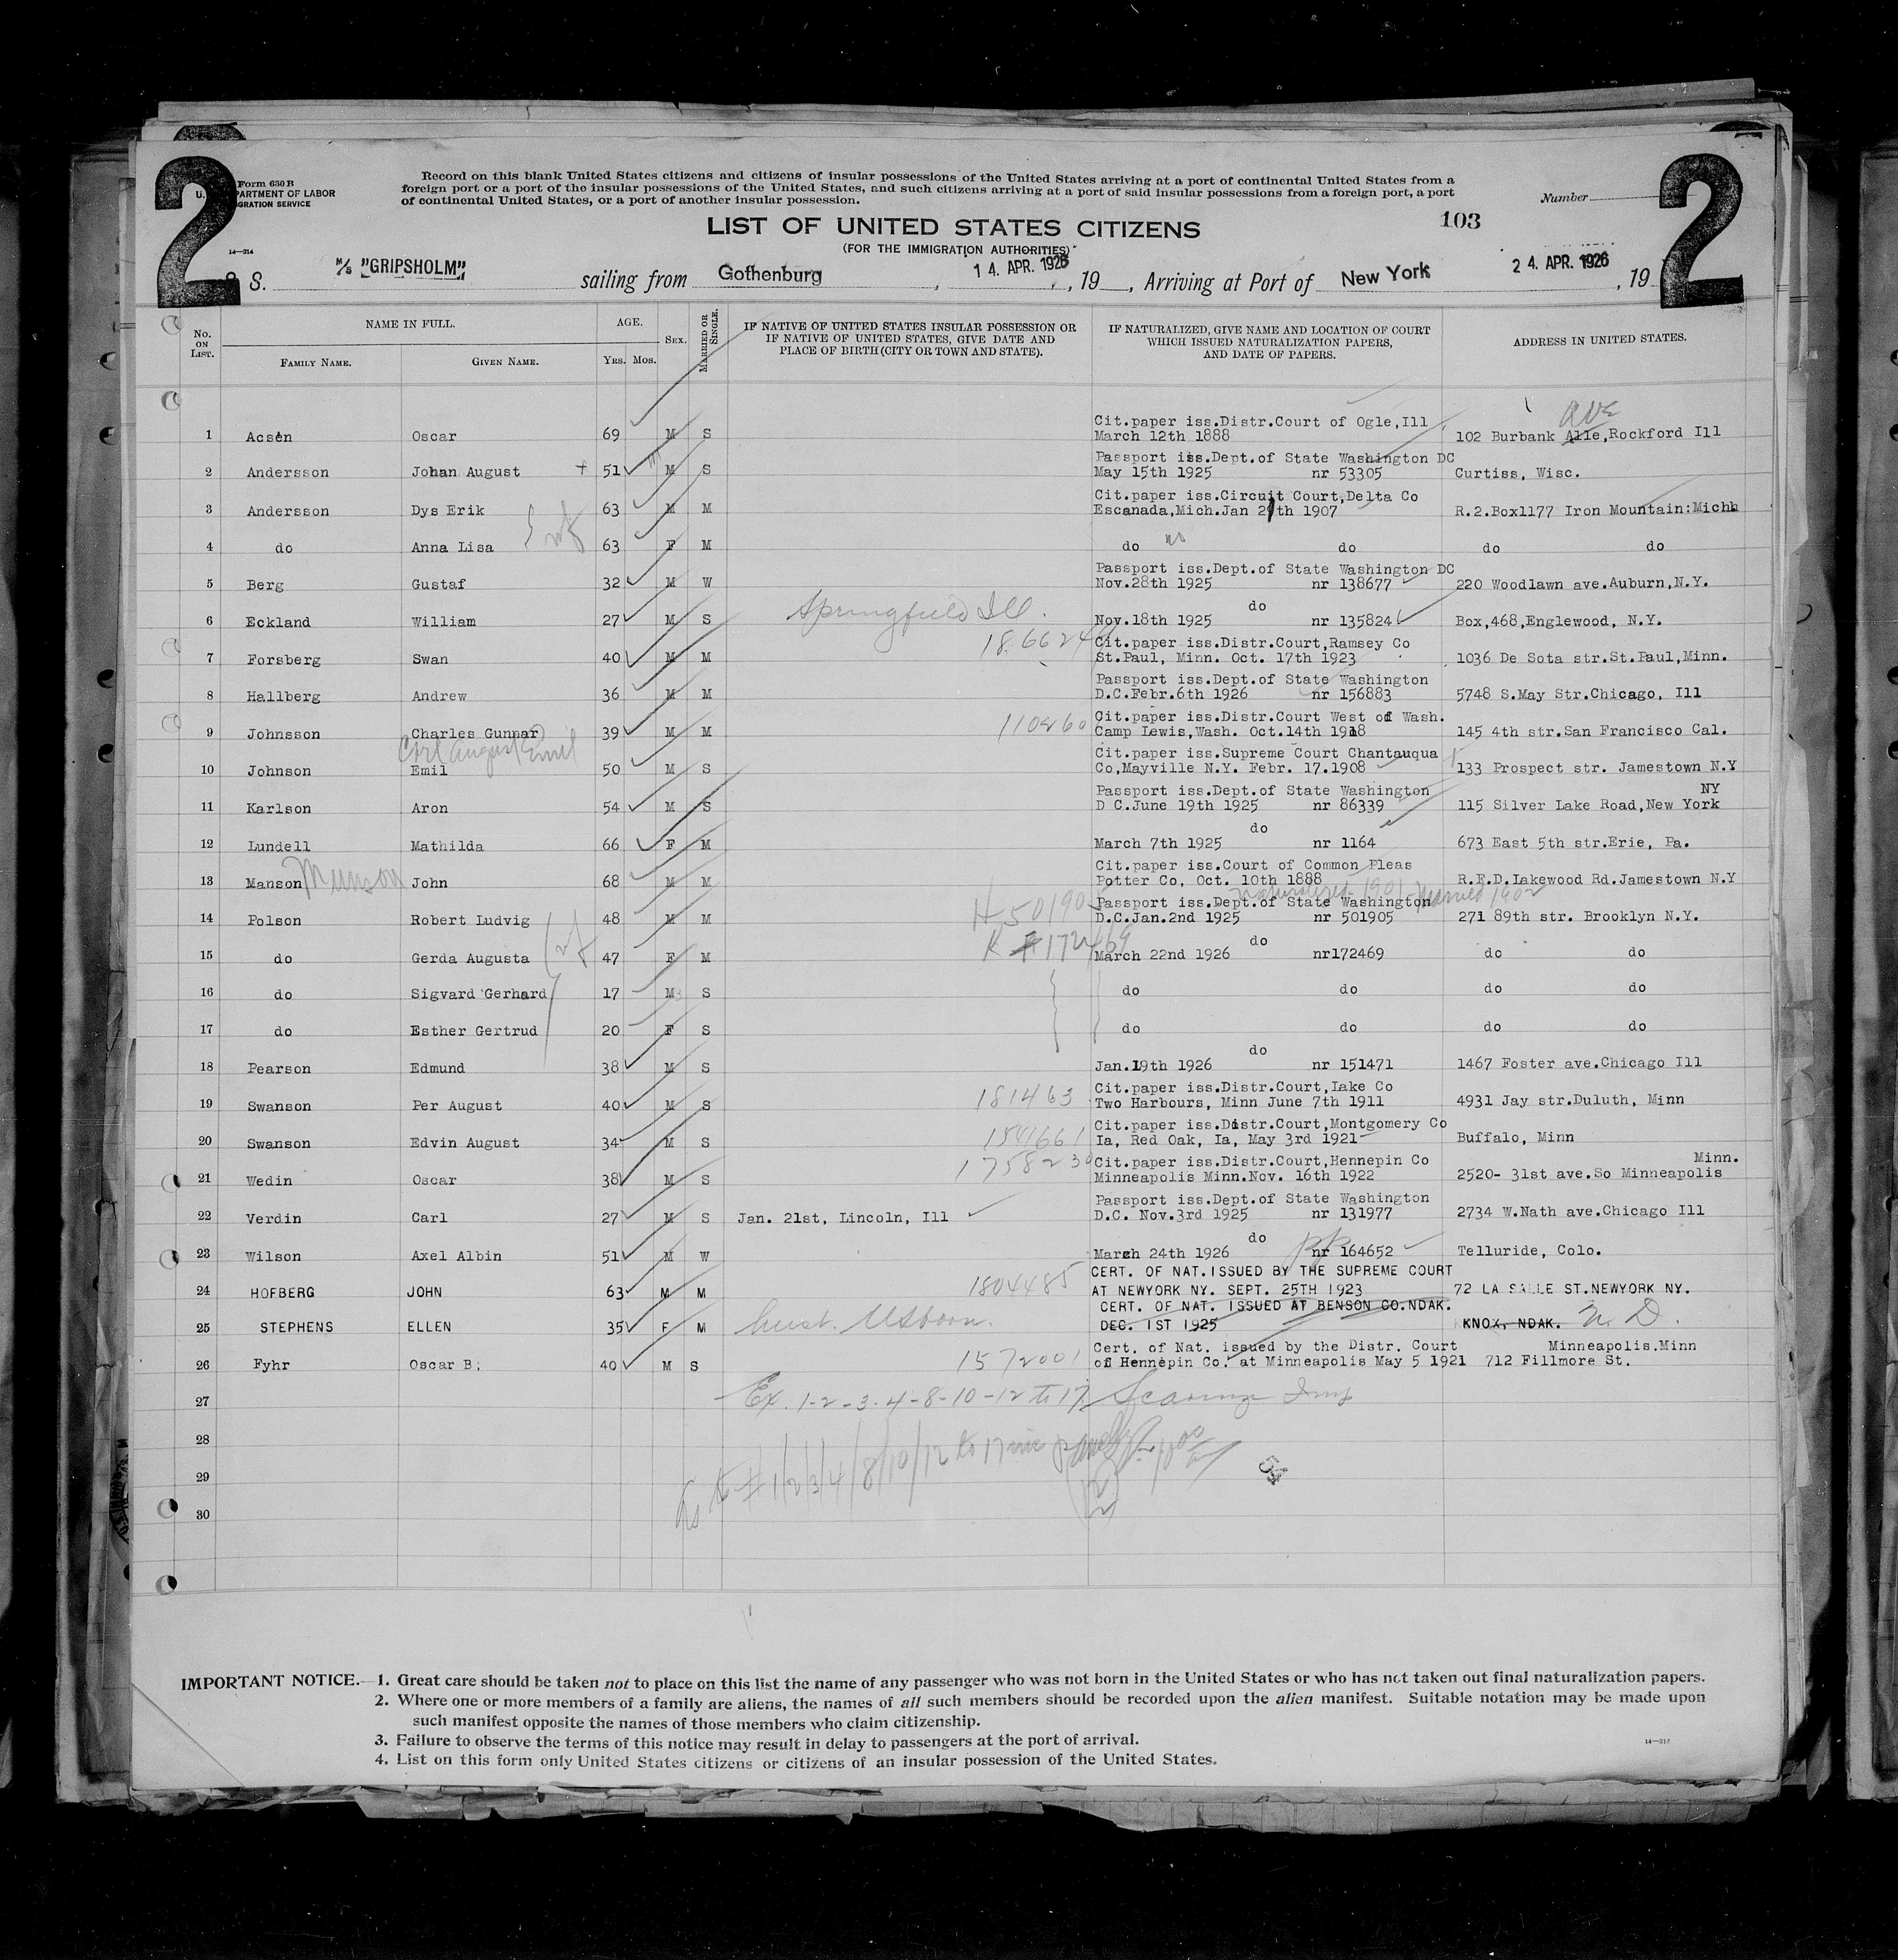 2
2
Form 630 B
U. DEPARTMENT OF LABOR
IMMIGRATION SERVICE
14—214
Record on this blank United States citizens and citizens of insular possessions of the United States arriving at a port of continental United States from a
foreign port or a port of the insular possessions of the United States, and such citizens arriving at a port of said insular possessions from a foreign port, a port
of continental United States, or a port of another insular possession.
Number
103
LIST OF UNITED STATES CITIZENS
(FOR THE IMMIGRATION AUTHORITIES)
S. M/S "GRIPSHOLM" sailing from Gothenburg, 14. APR. 1926, 19 , Arriving at Port of New York 24. APR. 1926, 19
No. ON LIST. NAME IN FULL. FAMILY NAME. GIVEN NAME. AGE. YRS. MOS. SEX. MARRIED OR SINGLE. IF NATIVE OF UNITED STATES INSULAR POSSESSION OR IF NATIVE OF UNITED STATES, GIVE DATE AND PLACE OF BIRTH (CITY OR TOWN AND STATE). IF NATURALIZED, GIVE NAME AND LOCATION OF COURT WHICH ISSUED NATURALIZATION PAPERS, AND DATE OF PAPERS. ADDRESS IN UNITED STATES.
Cit.paper iss.Distr.Court of Ogle,Ill ave
1 Acsén Oscar 69 M S March 12th 1888 102 Burbank Alle,Rockford Ill
Passport iss.Dept.of State Washington DC
2 Andersson Johan August + 51 M S May 15th 1925 nr 53305 Curtiss, Wisc.
Cit.paper iss.Circuit Court,Delta Co
3 Andersson Dys Erik 63 M M Escanada,Mich.Jan 29th 1907 R.2.Box1177 Iron Mountain:Mich
4 do Anna Lisa 63 F M do do do do
Passport iss.Dept.of State Washington DC
5 Berg Gustaf 32 M W Nov.28th 1925 nr 138677 220 Woodlawn ave.Auburn,N.Y.
do
6 Eckland William 27 M S Springfield Ill. Nov.18th 1925 nr 135824 Box,468,Englewood, N.Y.
186624 Cit.paper iss.Distr.Court,Ramsey Co
7 Forsberg Swan 40 M M St.Paul, Minn. Oct. 17th 1923 1036 De Sota str.St.Paul,Minn.
Passport iss.Dept.of State Washington
8 Hallberg Andrew 36 M M D.C.Febr.6th 1926 nr 156883 5748 S.May Str.Chicago, Ill
110260 Cit.paper iss.Distr.Court West of Wash.
9 Johnsson Charles Gunnar 39 M M Camp Lewis,Wash. Oct.14th 1918 145 4th str.San Francisco Cal.
Carl August Emil Cit.paper iss.Supreme Court Chantauqua
10 Johnson Emil 50 M S Co,Mayville N.Y. Febr. 17.1908 133 Prospect str. Jamestown N.Y
Passport iss.Dept.of State Washington NY
11 Karlson Aron 54 M S D C.June 19th 1925 nr 86339 115 Silver Lake Road,New York
do
12 Lundell Mathilda 66 F M March 7th 1925 nr 1164 673 East 5th str.Erie, Pa.
Cit.paper iss.Court of Common Pleas
13 Manson Munson John 68 M M Potter Co, Oct. 10th 1888 R.F.D.Lakewood Rd.Jamestown N.Y
Naturalized 1901 - Married 1902
H 501905 Passport iss.Dept.of State Washington
14 Polson Robert Ludvig 48 M M D.C.Jan.2nd 1925 nr 501905 271 89th str. Brooklyn N.Y.
172469 do
15 do Gerda Augusta 47 F M March 22nd 1926 nr172469 do do
16 do Sigvard Gerhard 17 M S do do do do
17 do Esther Gertrud 20 F S do do do do
do
18 Pearson Edmund 38 M S Jan.19th 1926 nr 151471 1467 Foster ave.Chicago Ill
Cit.paper iss.Distr.Court,Lake Co
19 Swanson Per August 40 M S 181463 Two Harbours, Minn June 7th 1911 4931 Jay str.Duluth, Minn
Cit.paper iss.Distr.Court,Montgomery Co
20 Swanson Edvin August 34 M S 1541661 Ia, Red Oak, Ia, May 3rd 1921 Buffalo, Minn
1758230 Cit.paper iss.Distr.Court,Hennepin Co Minn.
21 Wedin Oscar 38 M S Minneapolis Minn.Nov. 16th 1922 2520- 31st ave.So Minneapolis
Passport iss.Dept.of State Washington
22 Verdin Carl 27 M S Jan. 21st, Lincoln, Ill D.C. Nov.3rd 1925 nr 131977 2734 W.Nath ave.Chicago Ill
do
23 Wilson Axel Albin 51 M W March 24th 1926 nr 164652 Telluride, Colo.
CERT. OF NAT. ISSUED BY THE SUPREME COURT
24 HOFBERG JOHN 63 M M 1804485 AT NEWYORK NY. SEPT. 25TH 1923 72 LA SALLE ST.NEWYORK NY.
CERT. OF NAT. ISSUED AT BENSON CO.NDAK.
25 STEPHENS ELLEN 35 F M husb. USborn. DEC. 1ST 1925 KNOX, NDAK. N. D.
Cert. of Nat. issued by the Distr. Court Minneapolis.Minn
26 Fyhr Oscar B; 40 M S 1572001 of Hennepin Co. at Minneapolis May 5 1921 712 Fillmore St.
27 Ex. 1-2-3-4-8-10-12 to 17
28
29 54
30
IMPORTANT NOTICE.—1. Great care should be taken not to place on this list the name of any passenger who was not born in the United States or who has not taken out final naturalization papers.
2. Where one or more members of a family are aliens, the names of all such members should be recorded upon the alien manifest. Suitable notation may be made upon
such manifest opposite the names of those members who claim citizenship.
3. Failure to observe the terms of this notice may result in delay to passengers at the port of arrival.
4. List on this form only United States citizens or citizens of an insular possession of the United States.